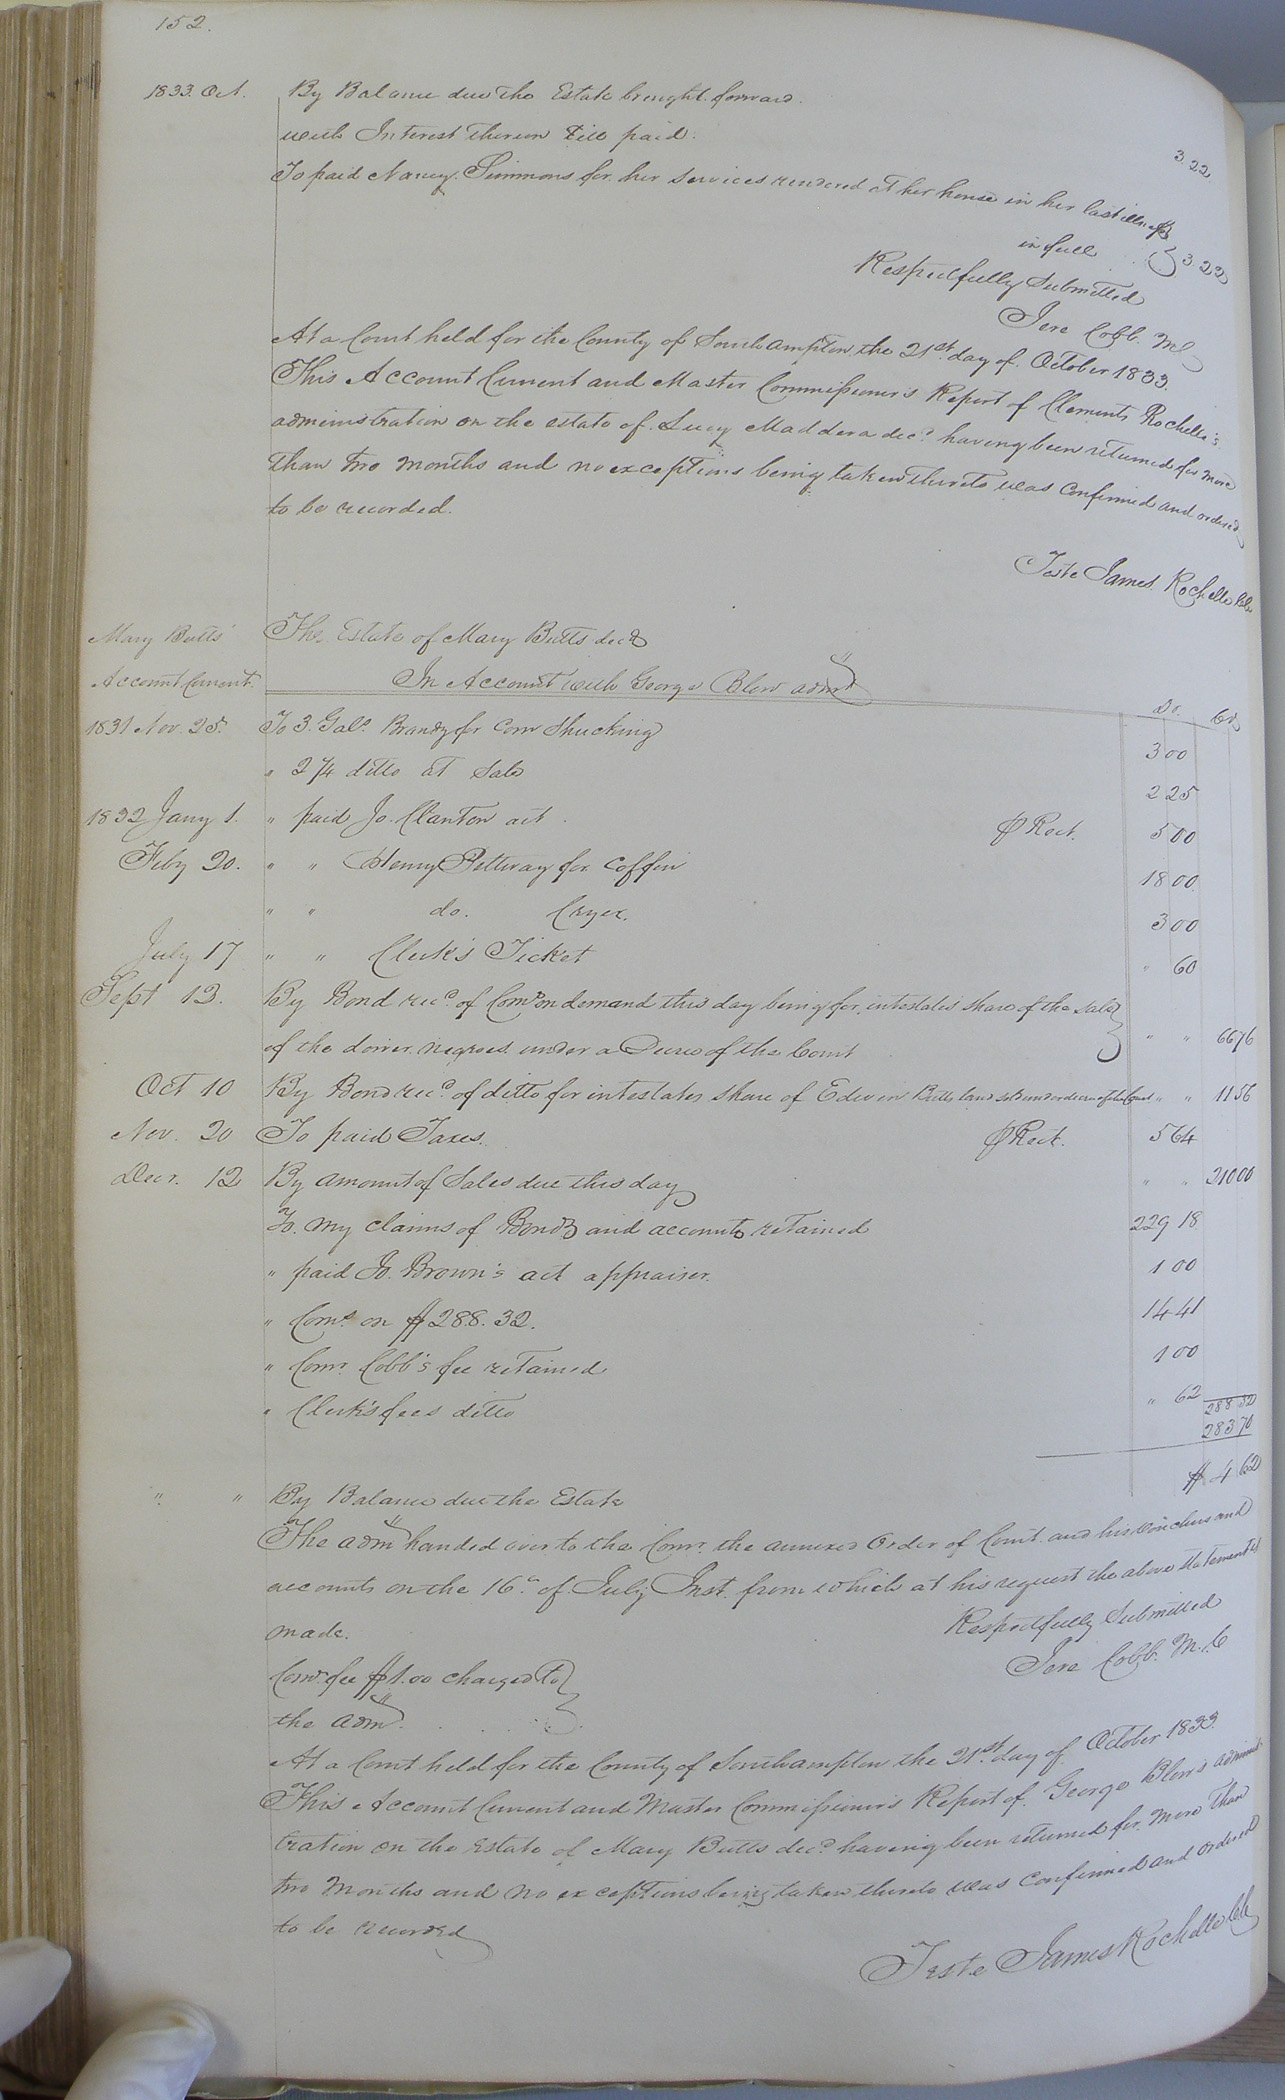 152.
1833. Oct. By Balance due the Estate brought forward.
with Interest thereon till paid. 3.22
To paid Nancy Simmons for her services rendered at her house in her last illness
in full 3 22
Respectfully Submitted
Jere Cobb. M C
At a Court held for the County of Southampton the 21st day of October 1833.
This Account Current and Master Commissioner's Report of Clements Rochelle's
administration on the estate of Lucy Maddera decd having been returned for more
than two months and no exceptions being taken thereto was confirmed and ordered
to be recorded.
Teste James Rochelle Clk
Mary Butts' The Estate of Mary Butts decd
Account Current. In Account with George Blow admr
Dr. Cr.
1831 Nov. 25. To 3. Gals. Brandy for Corn Shucking 3 00
" 2 1/4 ditto at Sale 2 25
1832 Jany 1. " paid Jo. Clanton act. Rect. 5 00
Feby 20. " " Henry Pettway for Coffin 18 00
" " do. Cryer. 3 00
July 17 " " Clerk's Ticket " 60
Sept 12. By Bond recd of Comr on demand this day being for intestates share of the sale
of the dower negroes under a Decree of the Court " " 66 76
Oct 10 By Bond recd of ditto for intestates share of Edwin Butts land sold under decree of the Court " " 11 56
Nov. 20 To paid Taxes. Rect. 5 64
Decr. 12 By amount of Sales due this day " " 210 00
To. my claims of Bonds and accounts retained 229 18
" paid Jo. Brown's act appraiser. 1 00
" Coms. on $288.32. 14 41
" Comr. Cobb's fee retained 1 00
" Clerk's fees ditto " 62 288 32
283 70
" " By Balance due the Estate $ 4 62
The admr handed over to the Comr. the annexed Order of Court and his vouchers and
accounts on the 16th of July Inst. from which at his request the above statement is
made. Respectfully Submitted
Jere Cobb. M. C
Comr. fee $1.00 charged to
the admr.
At a Court held for the County of Southampton the 21st day of October 1833.
This Account Current and Master Commissioner's Report of George Blow's adminis
tration on the Estate of Mary Butts decd having been returned for more than
two months and no exceptions being taken thereto was confirmed and ordered
to be recorded
Teste James Rochelle Clk